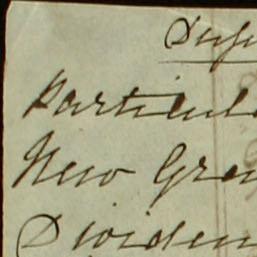 Dup
Particul
New Gra
Dividen